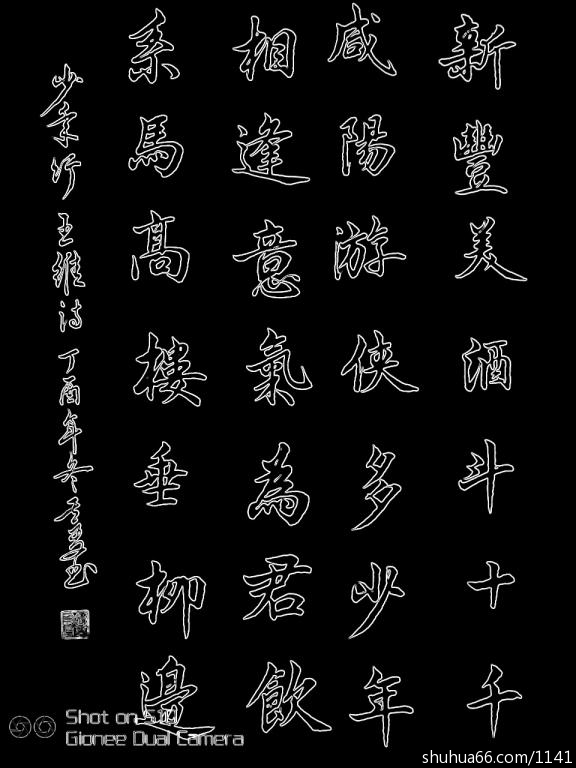 新豐美酒斗十千
咸陽游俠多少年
相逢意氣為君飲
系馬高樓垂柳邊
少年行 王維詩 丁酉年冬
Shot on
Gionee Dual Camera
shuhua66.com/1141